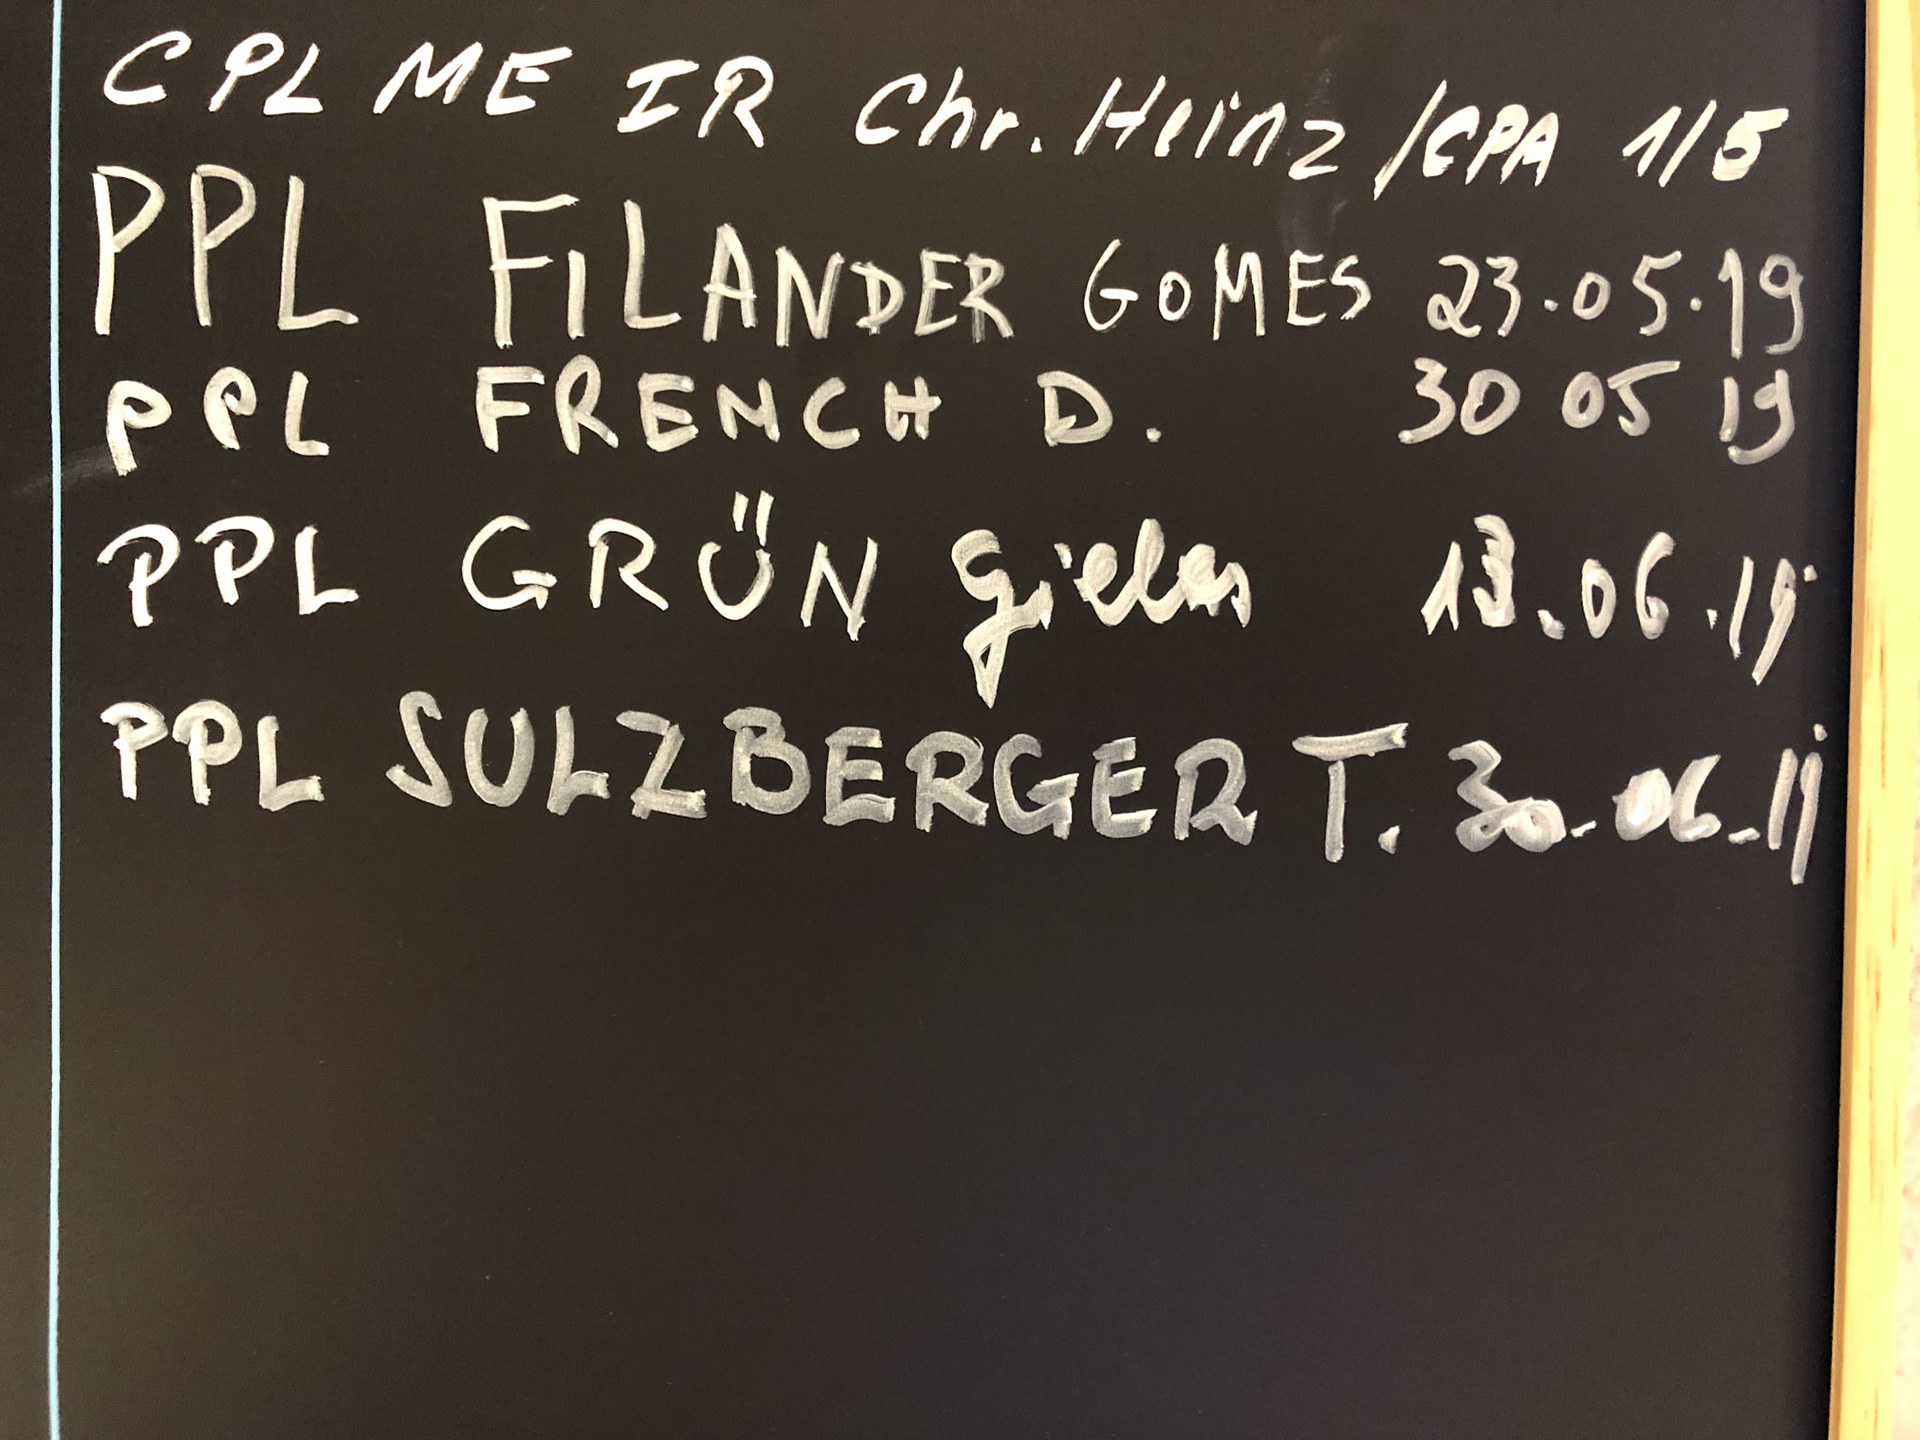 CPL ME IR Chr. Heinz /CPA 1/5
PPL FiLANDER GOMES 23.05.19
PPL FRENCH D. 30 05 19
PPL GRÜN 13.06.19
PPL SULZBERGER T. 30.06.19